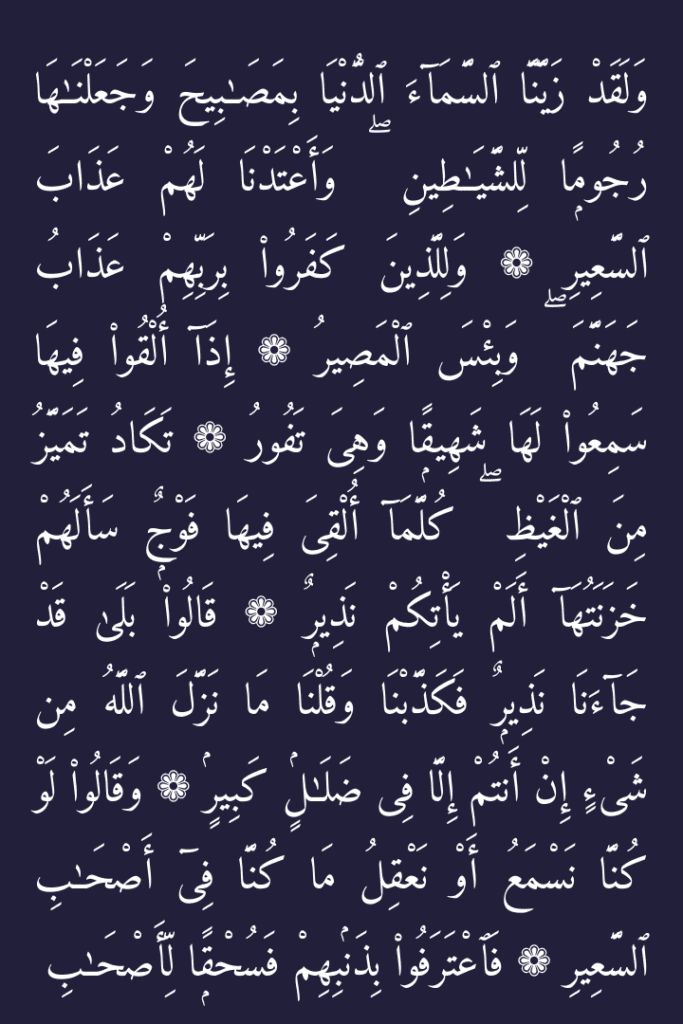 وَلَقَدْ زَيَّنَّا ٱلسَّمَآءَ ٱلدُّنْيَا بِمَصَـٰبِيحَ وَجَعَلْنَـٰهَا
رُجُومًۭا لِّلشَّيَـٰطِينِ ۖ وَأَعْتَدْنَا لَهُمْ عَذَابَ
ٱلسَّعِيرِ ۝ وَلِلَّذِينَ كَفَرُوا۟ بِرَبِّهِمْ عَذَابُ
جَهَنَّمَ ۖ وَبِئْسَ ٱلْمَصِيرُ ۝ إِذَآ أُلْقُوا۟ فِيهَا
سَمِعُوا۟ لَهَا شَهِيقًۭا وَهِىَ تَفُورُ ۝ تَكَادُ تَمَيَّزُ
مِنَ ٱلْغَيْظِ ۖ كُلَّمَآ أُلْقِىَ فِيهَا فَوْجٌۭ سَأَلَهُمْ
خَزَنَتُهَآ أَلَمْ يَأْتِكُمْ نَذِيرٌۭ ۝ قَالُوا۟ بَلَىٰ قَدْ
جَآءَنَا نَذِيرٌۭ فَكَذَّبْنَا وَقُلْنَا مَا نَزَّلَ ٱللَّهُ مِن
شَىْءٍ إِنْ أَنتُمْ إِلَّا فِى ضَلَـٰلٍۢ كَبِيرٍۢ ۝ وَقَالُوا۟ لَوْ
كُنَّا نَسْمَعُ أَوْ نَعْقِلُ مَا كُنَّا فِىٓ أَصْحَـٰبِ
ٱلسَّعِيرِ ۝ فَٱعْتَرَفُوا۟ بِذَنۢبِهِمْ فَسُحْقًۭا لِّأَصْحَـٰبِ